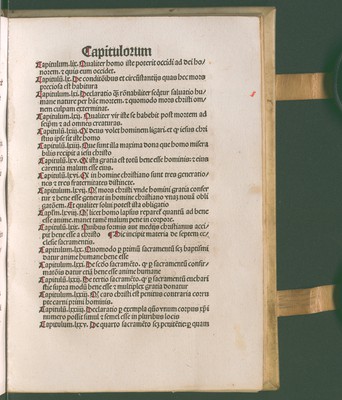 Capitulorum
Capitulum.lix. Qualiter homo iste poterit occidi ad dei ho-
norem. ⁊ quis eum occidet.
Capitulū.lx. De conditōibus et circūstantijs quas hec mors
preciosa est habitura
Capitulum.lxi. Declaratio ꝙ rōnabiliter seq̄tur saluatio hu-
mane nature per hāc mortem. ⁊ quomodo mors christi om-
nem culpam exterminat.
Capitulum.lxij. Qualiter vir iste se habebit post mortem ad
seip̄m ⁊ ad omnes creaturas.
Capitulū.lxiij. Ꝙ deus volet hominem ligari. et ꝙ iesus chri
stus ipse sit iste homo
Capitulum.lxiiij. Que sunt illa maxima dona que homo misera
bilis recipit a iesu christo
Capitulū.lxv. Ꝙ ista gratia est totū bene esse hominis: ⁊ eius
carentia malum esse eius.
Capitulū.lxvi. Ꝙ in homine christiano sunt tres generatio-
nes ⁊ tres fraternitates distincte.
Capitulum.lxvij. Ꝙ mors christi vnde homini gratia confer
tur ⁊ bene esse generat in homine christiano vnā nouā obli
gatōem. Et qualiter solui potest illa obligatio
Capl̄m.lxviij. Ꝙ licet homo lapsus repareꝭ quantū ad bene
esse anime. manet tamē malum pene in corpore.
Capitulū.lxix. Quibus formis aut medijs christianus acci
pit bene esse a christo ¶ Hic incipit materia de septem ec
clesie sacramentis.
Capitulum.lxx. Quomodo ꝑ primū sacramentū sc̄z baptismi
datur anime humane bene esse
Capitulum.lxxi. De scd̄o sacramēto. ꝙ ꝑ sacramentū confir-
matōis datur etiā bene esse anime humane
Capitulum.lxxij. De tertio sacramēto. ꝙ ꝑ sacramentū euchari
stie supra modū bene esse ⁊ multiplex gratia donatur
Capitulum.lxxiij. Ꝙ caro christi est penitus contraria corru
pte carni primi hominis.
Capitulum.lxxiiij. Declaratio ꝑ exempla quō vnum corpus xp̄i
numero possit simul ⁊ semel esse in pluribus locis
Capitulum.lxxv. De quarto sacramēto sc̄z penitētie ꝙ quam